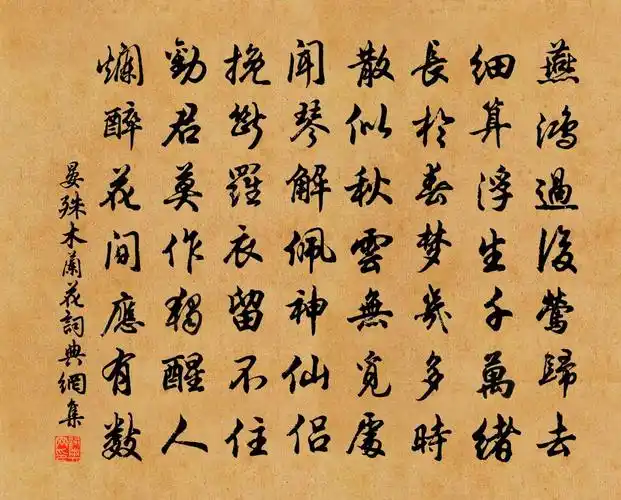 燕鴻過後鶯歸去
細算浮生千萬緒
長於春夢幾多時
散似秋雲無覓處
聞琴解佩神仙侶
挽斷羅衣留不住
勸君莫作獨醒人
爛醉花间應有數
晏殊木蘭花詞典網集